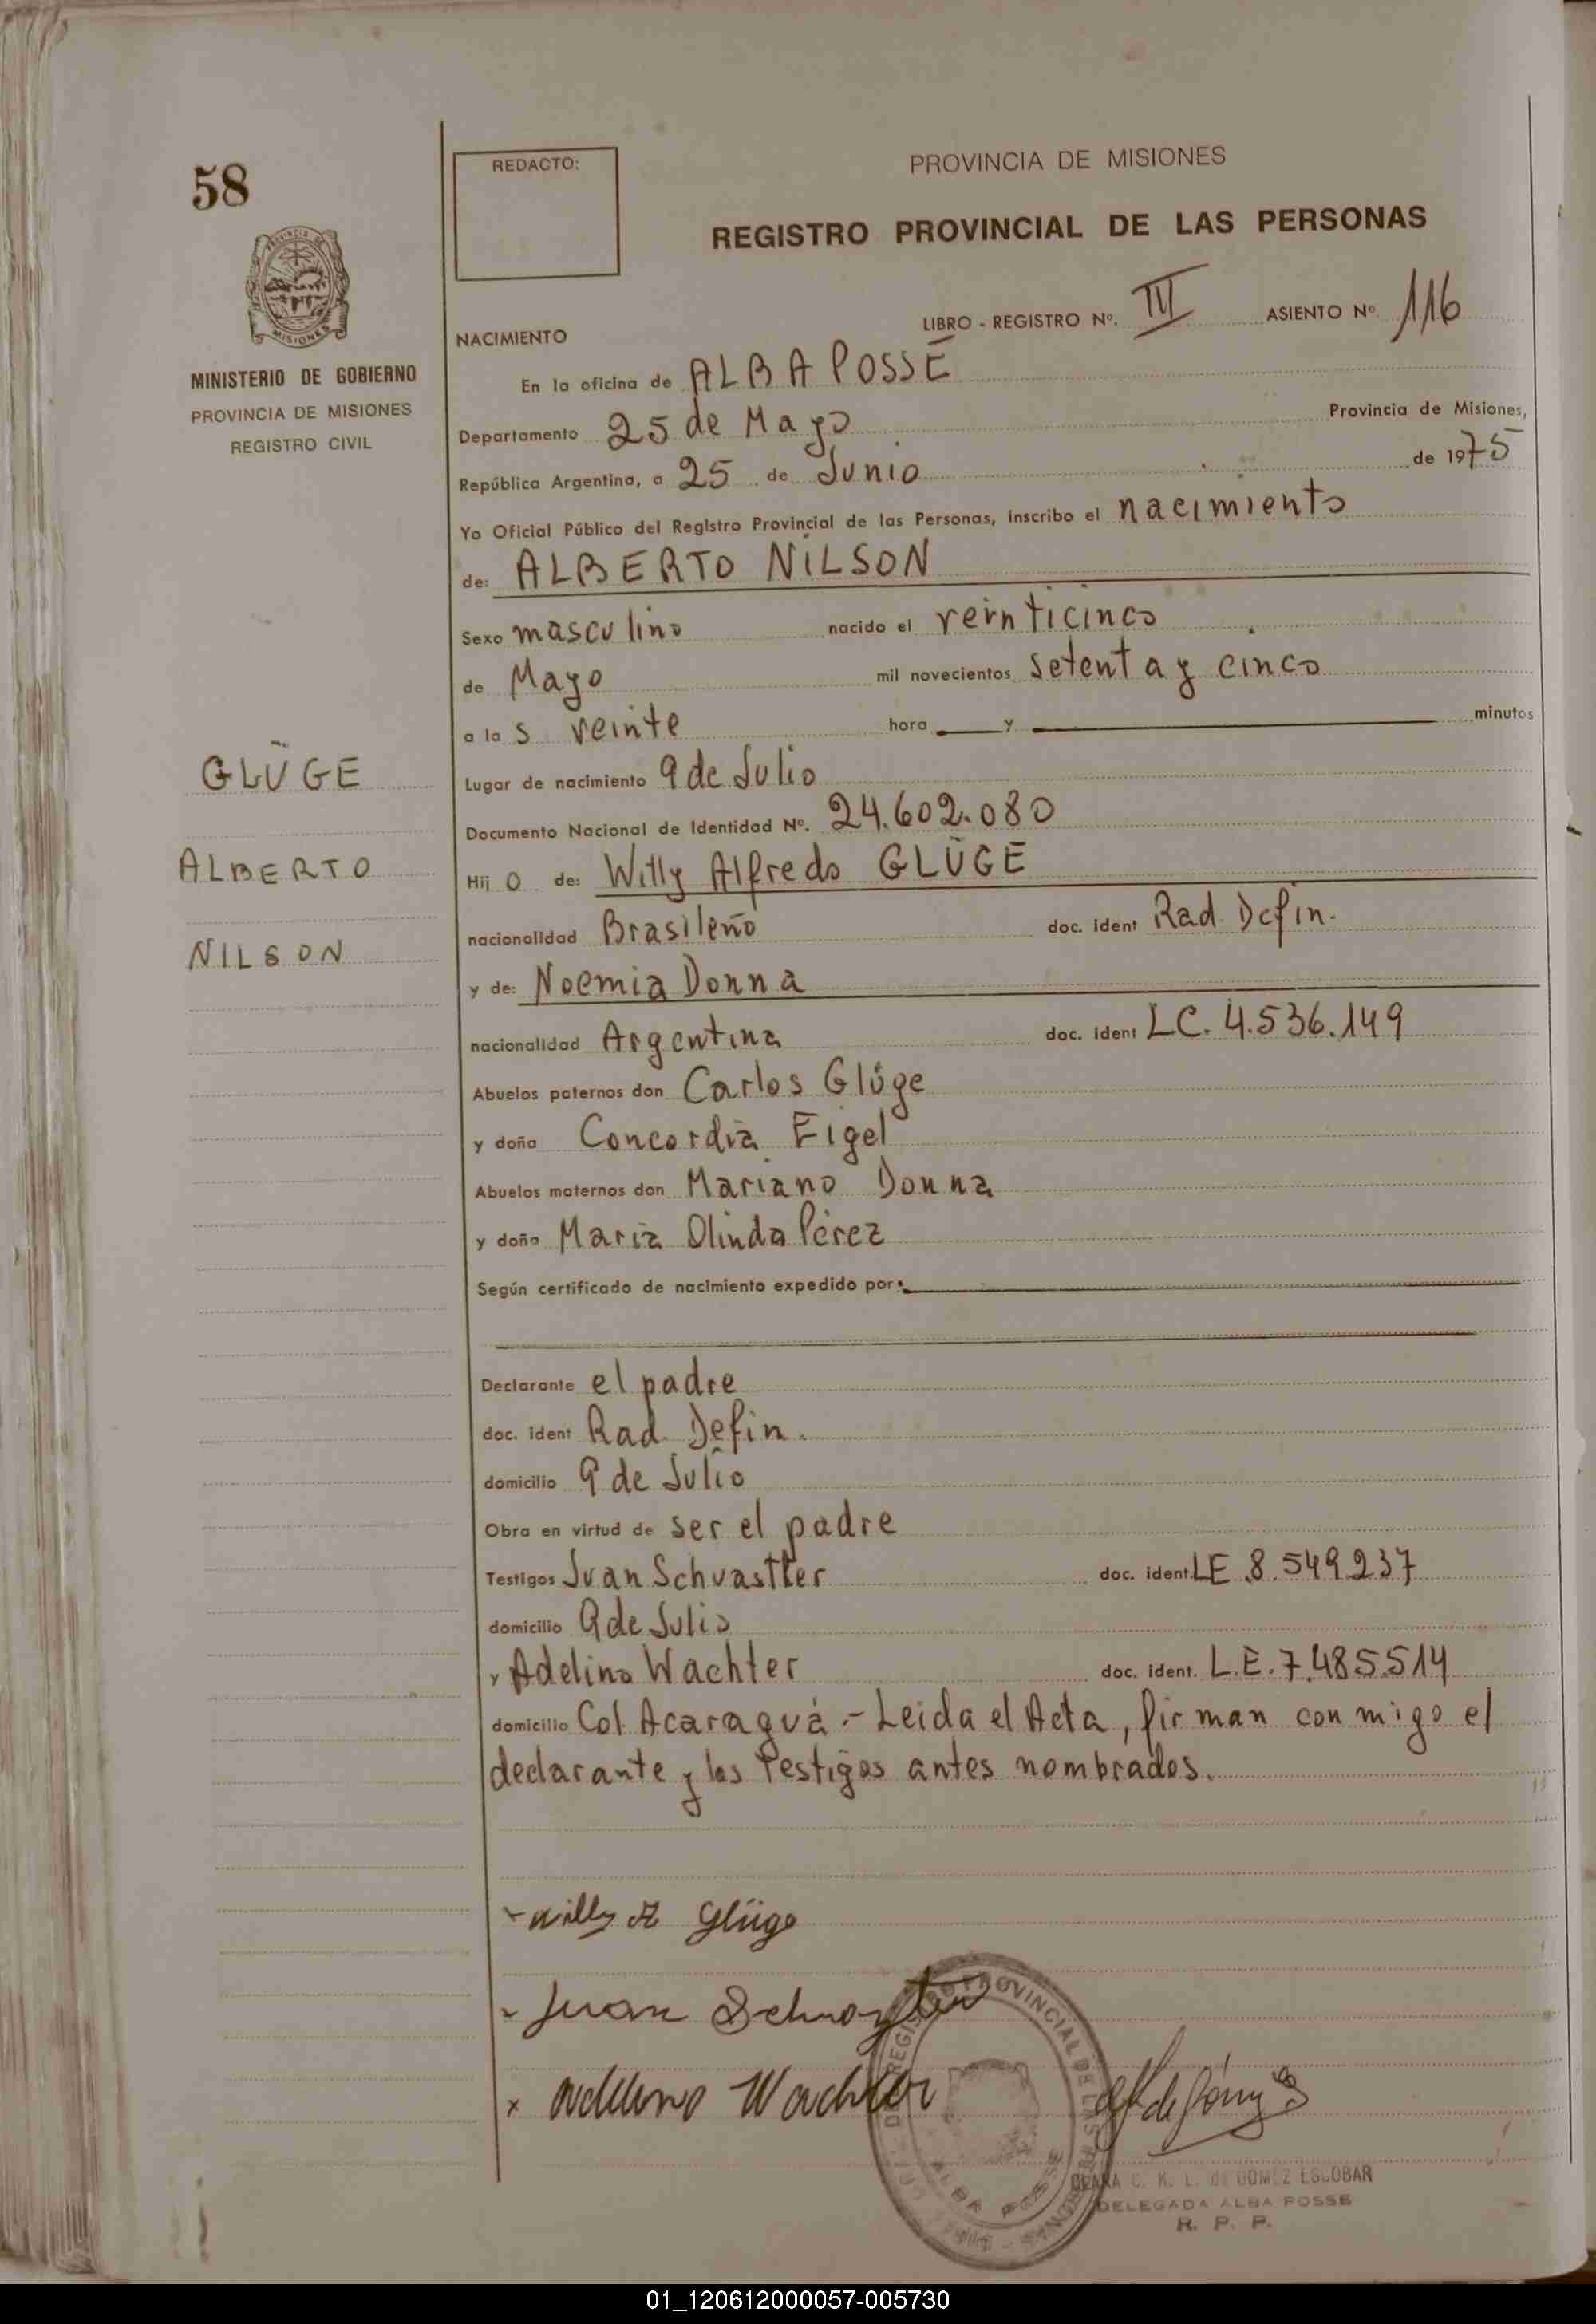 58
REDACTO:
PROVINCIA DE MISIONES
REGISTRO PROVINCIAL DE LAS PERSONAS
MISIONES
MINISTERIO DE GOBIERNO
PROVINCIA DE MISIONES
REGISTRO CIVIL
LIBRO - REGISTRO Nº. III ASIENTO Nº. 116
NACIMIENTO
En la oficina de ALBA POSSE
Departamento 25 de Mayo Provincia de Misiones,
República Argentina, a 25 de Junio de 1975
Yo Oficial Público del Registro Provincial de las Personas, inscribo el nacimiento
de: ALBERTO NILSON
Sexo masculino nacido el veinticinco
de Mayo mil novecientos setenta y cinco
a las veinte hora y minutos
GLÜGE
ALBERTO
NILSON
Lugar de nacimiento 9 de Julio
Documento Nacional de Identidad Nº. 24.602.080
Hijo de: Willy Alfredo GLÜGE
nacionalidad Brasileño doc. ident Rad. Defin.
y de: Noemia Donna
nacionalidad Argentina doc. ident LC. 4.536.149
Abuelos paternos don Carlos Glüge
y doña Concordia Eigel
Abuelos maternos don Mariano Donna
y doña Maria Olinda Pérez
Según certificado de nacimiento expedido por:
Declarante el padre
doc. ident Rad. Defin.
domicilio 9 de Julio
Obra en virtud de ser el padre
Testigos Juan Schvastler doc. ident. LE 8.549.237
domicilio 9 de Julio
y Adelino Wachter doc. ident. L.E. 7.485.514
domicilio Col. Acaraguá.- Leida el Acta, firman conmigo el
declarante y los testigos antes nombrados.
Willy A Glüge
Juan
Adelino Wachter
REGISTRO PROVINCIAL DE LAS PERSONAS
ALBA POSSE
CLARA C. K. L. de GOMEZ ESCOBAR
DELEGADA ALBA POSSE
R. P. P.
01_120612000057-005730